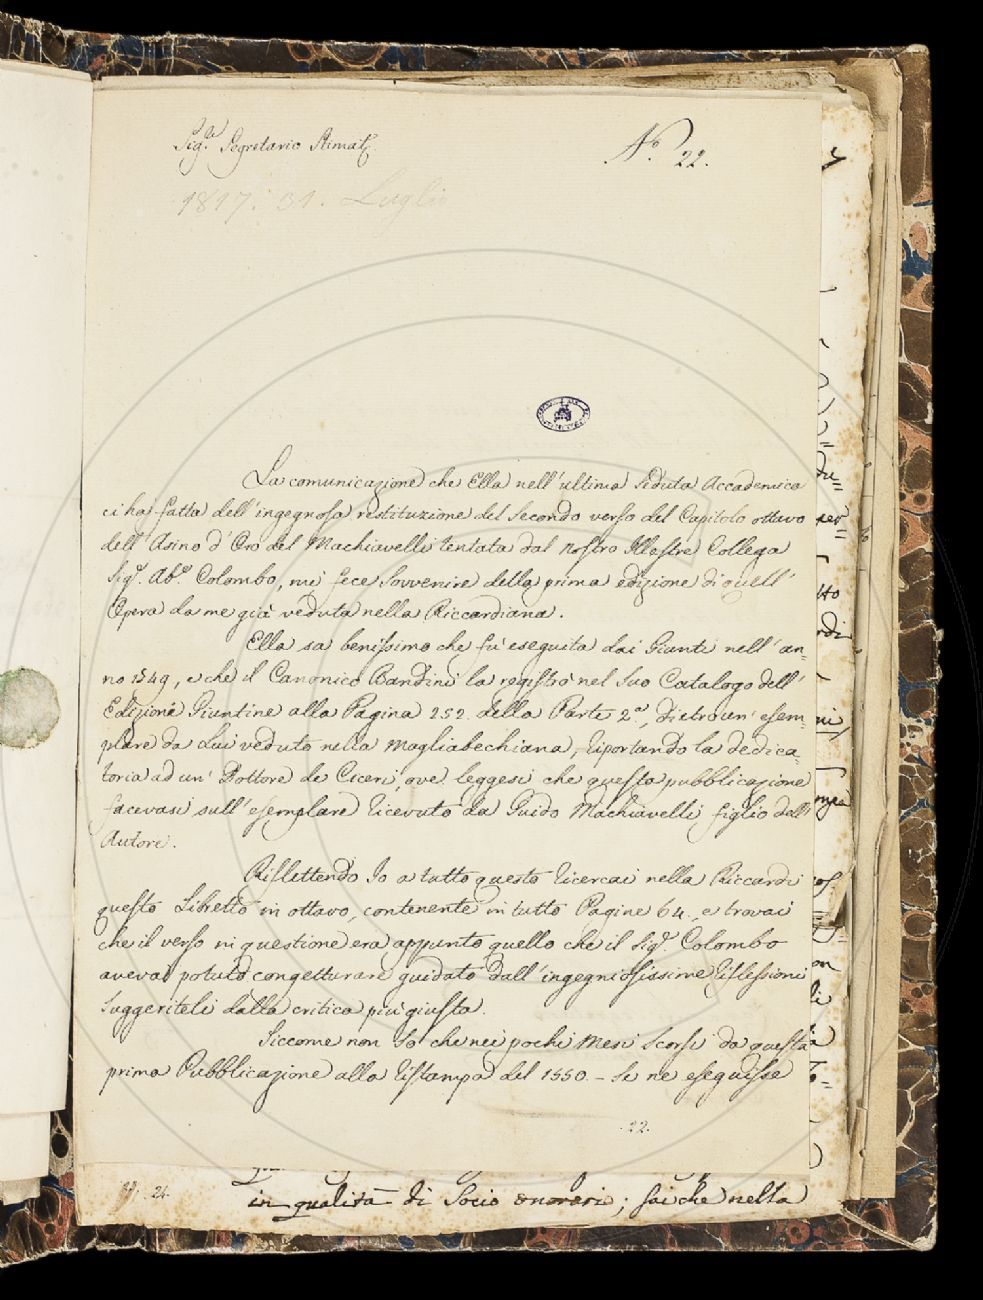 Sig.e Segretario Stimat.
N.o 22.
1817. 31. Luglio
La comunicazione che Ella nell'ultima Seduta Accademica
ci ha fatta dell'ingegnosa restituzione del Secondo verso del Capitolo ottavo
dell'Asino d'Oro del Machiavelli tentata dal nostro Illustre Collega
Sig.r Ab.e Colombo, mi fece Sovvenire della prima edizione di quell'
Opera da me già veduta nella Riccardiana.
Ella sa benissimo che fu eseguita dai Giunti nell'an=
no 1549, e che il Canonico Bandini la registrò nel Suo Catalogo dell'
Edizioni Giuntine alla Pagina 252. della Parte 2.a, dietro un'esem=
plare da Lui veduto nella Magliabechiana, riportando la dedica=
toria ad un'Dottore de Ciceri, ove leggesi che questa pubblicazione
facevasi sull'esemplare ricevuto da Guido Machiavelli figlio dell'
Autore.
Riflettendo Io a tutto questo ricercai nella Riccardi
questo Libretto in ottavo, contenente in tutto Pagine 64., e trovai
che il verso in questione era appunto quello che il Sig.r Colombo
aveva potuto congetturare guidato dall'ingegniosissime riflessioni
Suggeriteli dalla critica più giusta.
Siccome non So che nei pochi Mesi Scorsi da questa
prima Pubblicazione alla ristampa del 1550. - Se ne eseguisse
22.
24
in qualità di Socio onorario; sai che nella